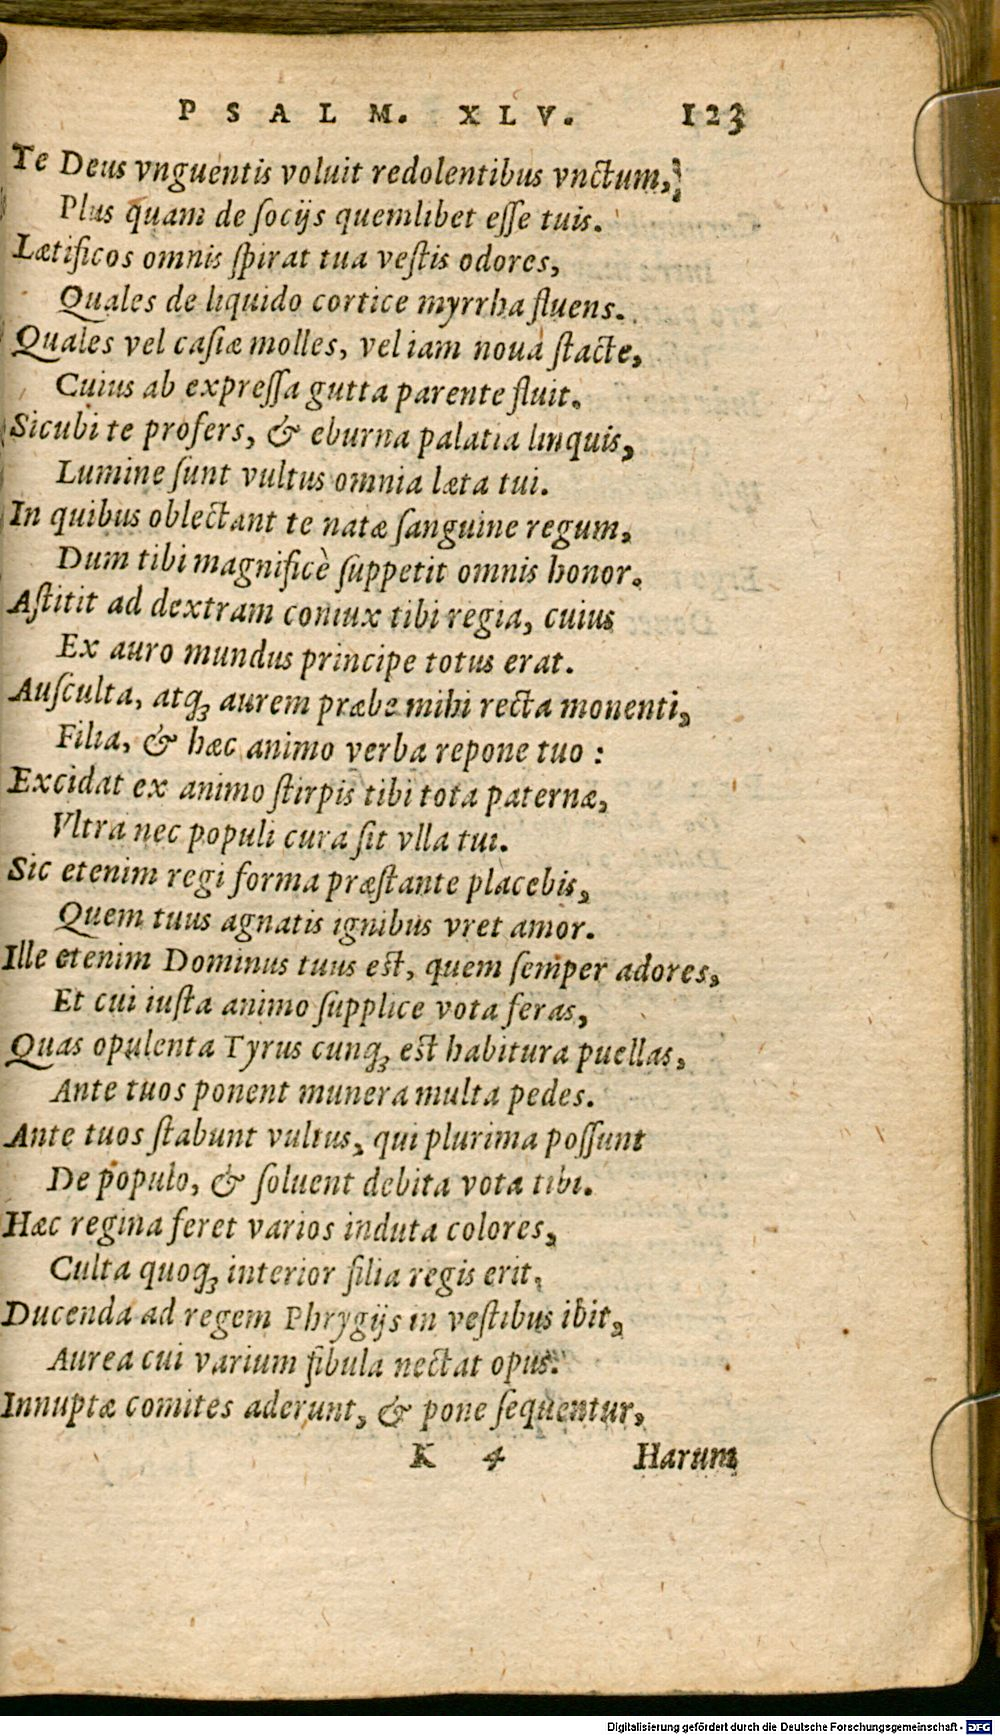 PSALM. XLV. 123
Te Deus vnguentis voluit redolentibus vnctum,
Plus quam de ſocijs quemlibet eſſe tuis.
Lætificos omnis ſpirat tua veſtis odores,
Quales de liquido cortice myrrha fluens.
Quales vel caſiæ molles, vel iam noua ſtacte,
Cuius ab expreſſa gutta parente fluit.
Sicubi te profers, & eburna palatia linquis,
Lumine ſunt vultus omnia læta tui.
In quibus oblectant te natæ ſanguine regum,
Dum tibi magnificè ſuppetit omnis honor.
Aſtitit ad dextram coniux tibi regia, cuius
Ex auro mundus principe totus erat.
Auſculta, atq; aurem præbe mihi recta monenti,
Filia, & hæc animo verba repone tuo :
Excidat ex animo ſtirpis tibi tota paternæ,
Vltra nec populi cura ſit vlla tui.
Sic etenim regi forma præſtante placebis,
Quem tuus agnatis ignibus vret amor.
Ille etenim Dominus tuus est, quem ſemper adores,
Et cui iuſta animo ſupplice vota feras,
Quas opulenta Tyrus cunq; est habitura puellas,
Ante tuos ponent munera multa pedes.
Ante tuos ſtabunt vultus, qui plurima poſſunt
De populo, & ſoluent debita vota tibi.
Hæc regina feret varios induta colores,
Culta quoq; interior filia regis erit,
Ducenda ad regem Phrygijs in veſtibus ibit,
Aurea cui varium fibula nectat opus.
Innuptæ comites aderunt, & pone ſequentur,
K 4 Harum
Digitalisierung gefördert durch die Deutsche Forschungsgemeinschaft - DFG